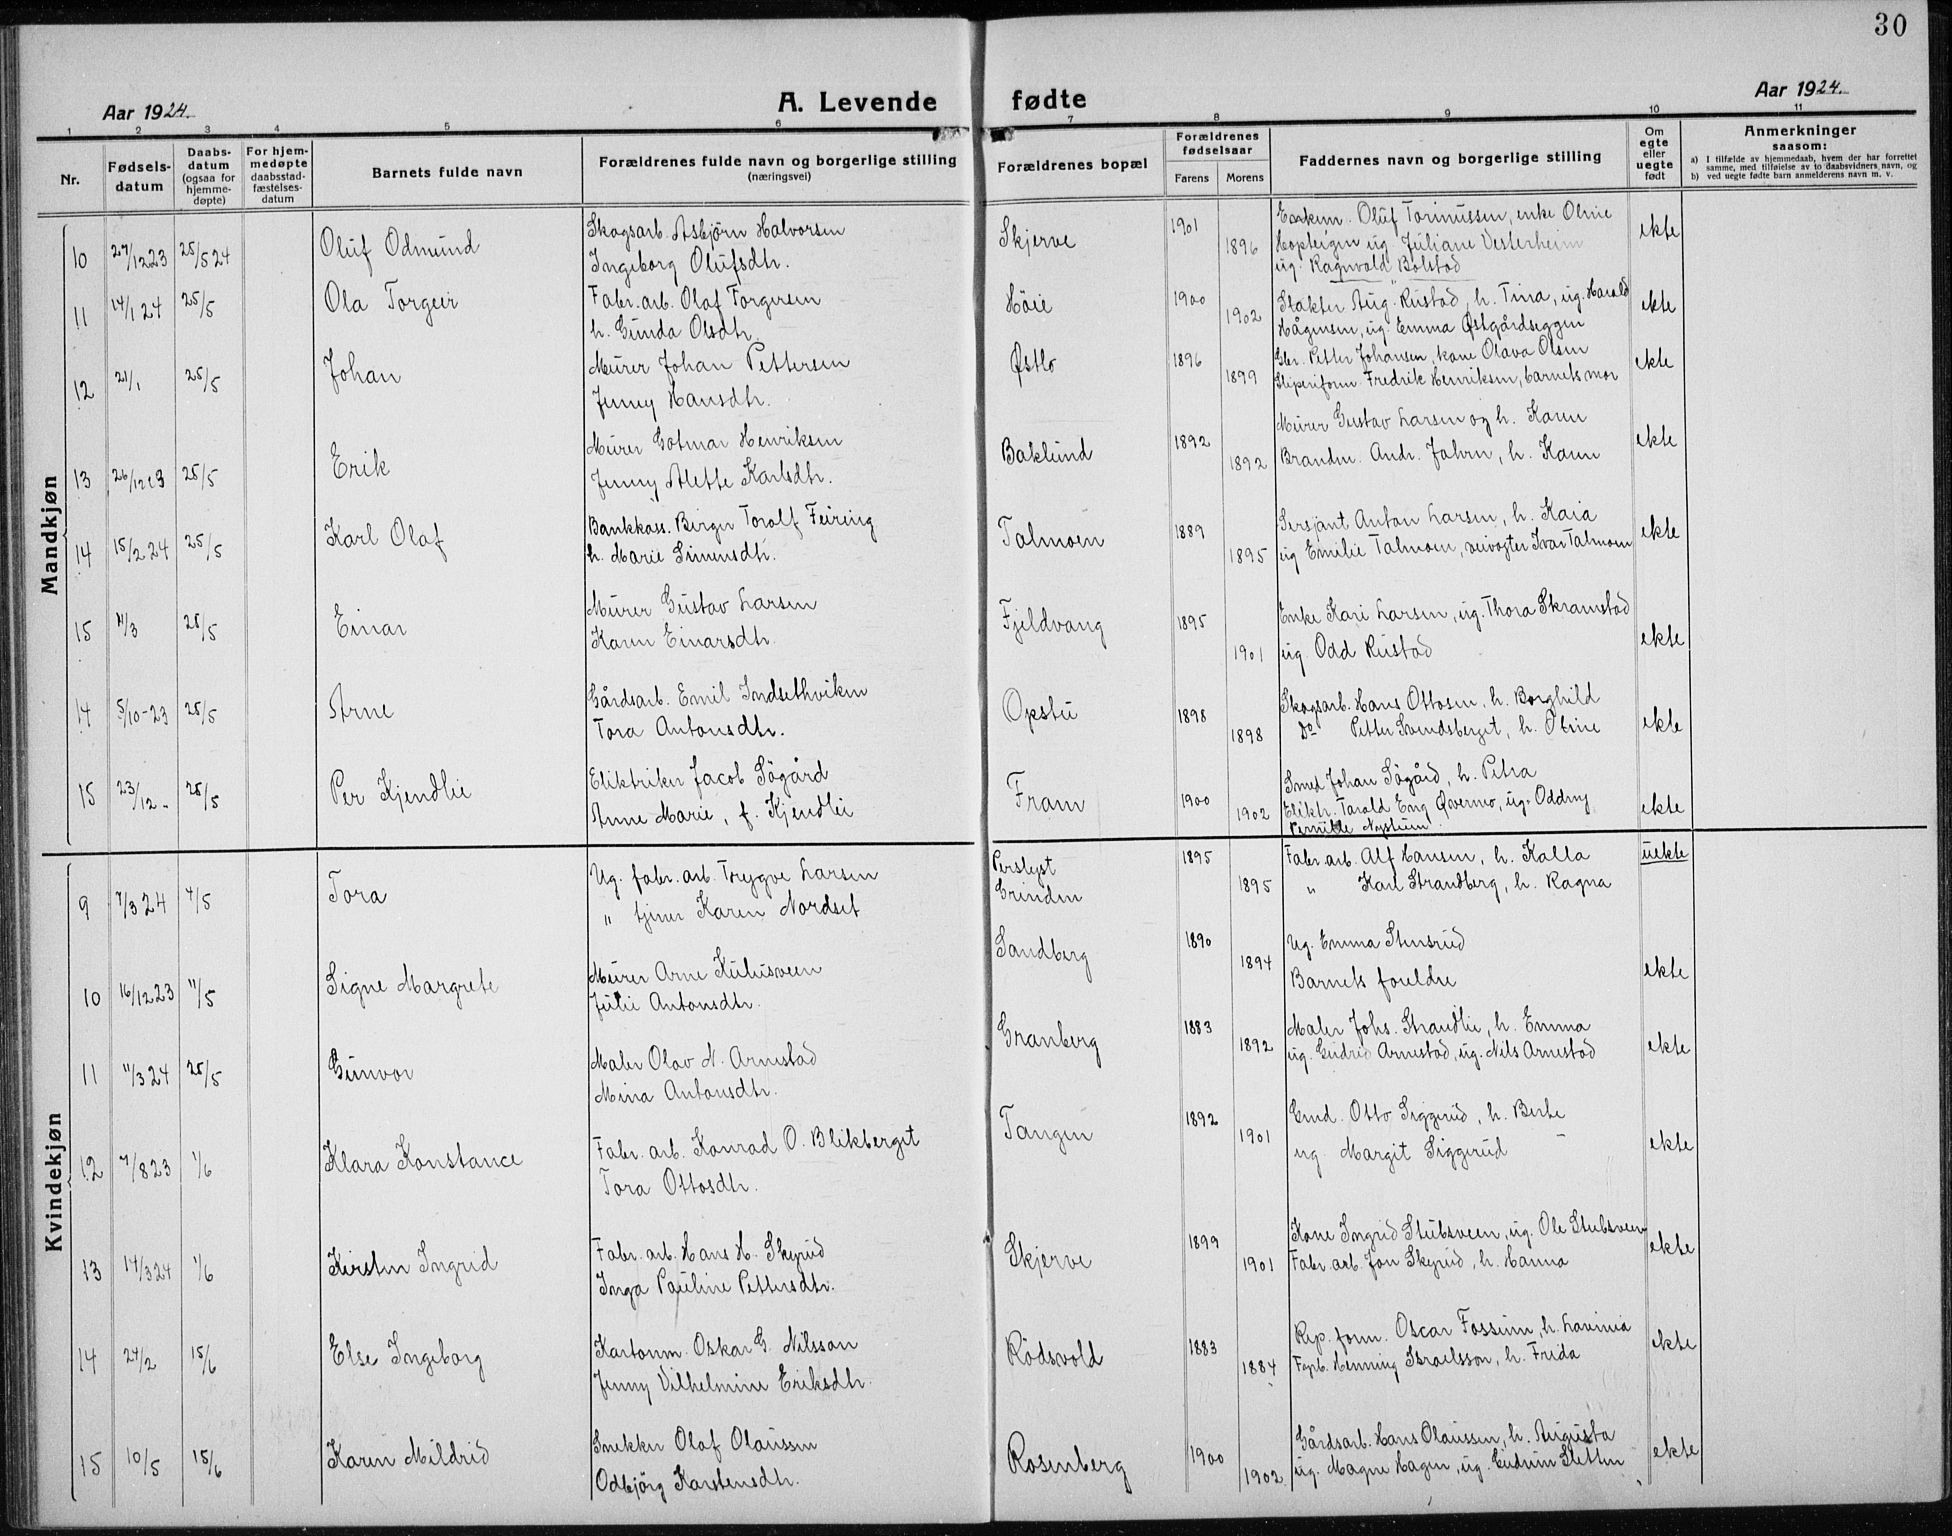 30
Aar 1924.
A. Levende fødte
Aar 1924.
1 2 3 4 5 6 7 8 9 10 11
Nr.
Fødsels-
datum
Daabs-
datum
(ogsaa for
hjemme-
døpte)
For hjem-
medøpte
daabsstad-
fæstelses-
datum
Barnets fulde navn
Forældrenes fulde navn og borgerlige stilling
(næringsvei)
Forældrenes bopæl
Forældrenes
fødselsaar
Farens Morens
Faddernes navn og borgerlige stilling
Om
egte
eller
uegte
født
Anmerkninger
saasom:
a) I tilfælde av hjemmedaab, hvem der har forrettet
samme, med tilføielse av to daabsvidners navn, og
b) ved uegte fødte barn anmelderens navn m. v.
Mandkjøn
10 27/12 23 25/5 24 Oluf Odmund Skogsarb. Asbjørn Halvorsen Skjerve 1901 Oluf Torinussen, enke Oline ekte
Ingeborg Olufsdtr. 1896 ug. Juliane Vesterheim
ug. Ragnvald Bolstad
11 14/1 24 25/5 Ola Torgeir Fabr. arb. Olaf Torgersen Høie 1900 Aug. Rustad, h. Tina, ug. Harald ekte
h. Gunda Olsdtr. 1902 Hågensen, ug. Emma Østgårdseggen
12 21/1 25/5 Johan Murer Johan Pettersen Østlo 1896 Petter Johansen, kone Olava Olsen ekte
Jenny Hansdtr. 1899 Sliperiform. Fredrik Henriksen, barnets mor
13 26/12 23 25/5 Erik Murer Gotmar Henriksen Baklund 1892 Murer Gustav Larsen og h. Karen ekte
Jenny Alette Karlsdtr. 1892 Brandm. Andr. Jahrn, h. Karen
14 15/2 24 25/5 Karl Olaf Bankkass. Birger Toralf Feiring Talmoen 1889 Sersjant Anton Larsen, h. Kaia ekte
h. Marie Simensdtr. 1895 ug Emilie Talmoen, veivogter Ivar Talmoen
15 4/3 25/5 Einar Murer Gustav Larsen Fjeldvang 1895 Enke Kari Larsen, ug. Thora Skramstad ekte
Karen Einarsdtr. 1901 ug. Odd Rustad
14 5/10-23 25/5 Arne Gårdsarb. Emil Indsethviken Opstu 1898 Skogsarb. Hans Ottosen, h. Borghild ekte
Tora Antonsdtr. 1898 Do Petter Svendsberget, h. Otine
15 23/12 - 25/5 Per Kjendlie Elektriker Jacob Søgård Fram 1900 Smed Johan Søgård, h. Petra ekte
Anne Marie, f. Kjendlie 1902 Elektr. Tarald Eng Øvermo, ug. Oddny
Pernille Nystuen
Kvindekjøn
9 7/3 24 4/5 Tora Ug. fabr. arb. Trygve Larsen Perslyst 1895 Fabr. arb. Alf Hansen, h. Kalla uekte
" tjener Karen Nordset Grinden 1895 " Karl Strandberg, h. Ragna
10 16/12 23 11/5 Signe Margrete Murer Arne Kulusveen Sandberg 1890 Ug. Emma Stensrud ekte
Julie Antonsdtr. 1894 Barnets foreldre
11 11/3 24 25/5 Gunvor Maler Olav N. Arnestad Granberg 1883 Maler Johs. Strandlie, h. Emma ekte
Mina Antonsdtr. 1892 ug. Gudrid Arnestad, ug. Nils Arnestad
12 7/8 23 1/6 Klara Konstance Fabr. arb. Konrad O. Blikberget Tangen 1892 Otto Siggerud, h. Berte ekte
Tora Ottosdtr. 1901 ug. Margit Siggerud
13 14/3 24 1/6 Kirsten Ingrid Fabr. arb. Hans H. Skyrud Skjerve 1899 Kone Ingrid Stubsveen, ug. Ole Stubsveen ekte
Inga Pauline Pettersdtr. 1901 Fabr. arb. Jon Skyrud, h. Hanna
14 24/2 15/6 Else Ingeborg Kartonm. Oskar G. Nilsson Rødsvold 1883 Rep. form. Oscar Fossum, h. Lavinia ekte
Jenny Vilhelmine Eriksdtr. 1884 Henning Israelsson, h. Frida
15 10/5 15/6 Karen Mildrid Snekker Olaf Olaussen Rosenberg 1900 Gårdsarb. Hans Olaussen, h. Augusta ekte
Odbjørg Karstensdtr. 1902 ug. Magne Hagen, ug. Gudrun Sletten